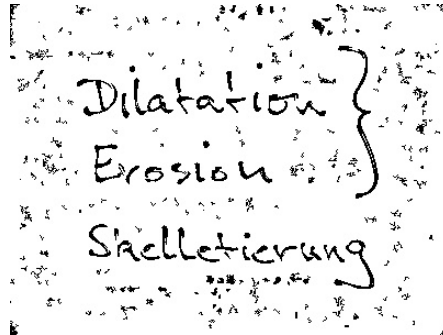 Dilatation
Erosion
Skelletierung